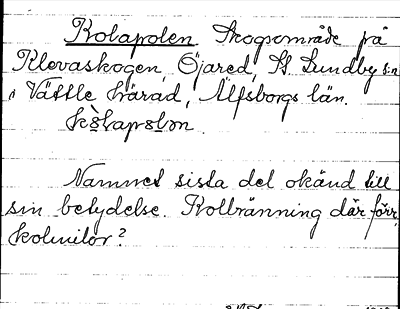 Kolapolen Skogsområde på
Klevaskogen, Öjared, St. Lundby s:n
i Vättle härad, Älfsborgs län.
Namnet sista del okänd till
sin betydelse. Kolbränning där förr,
kolmilor?